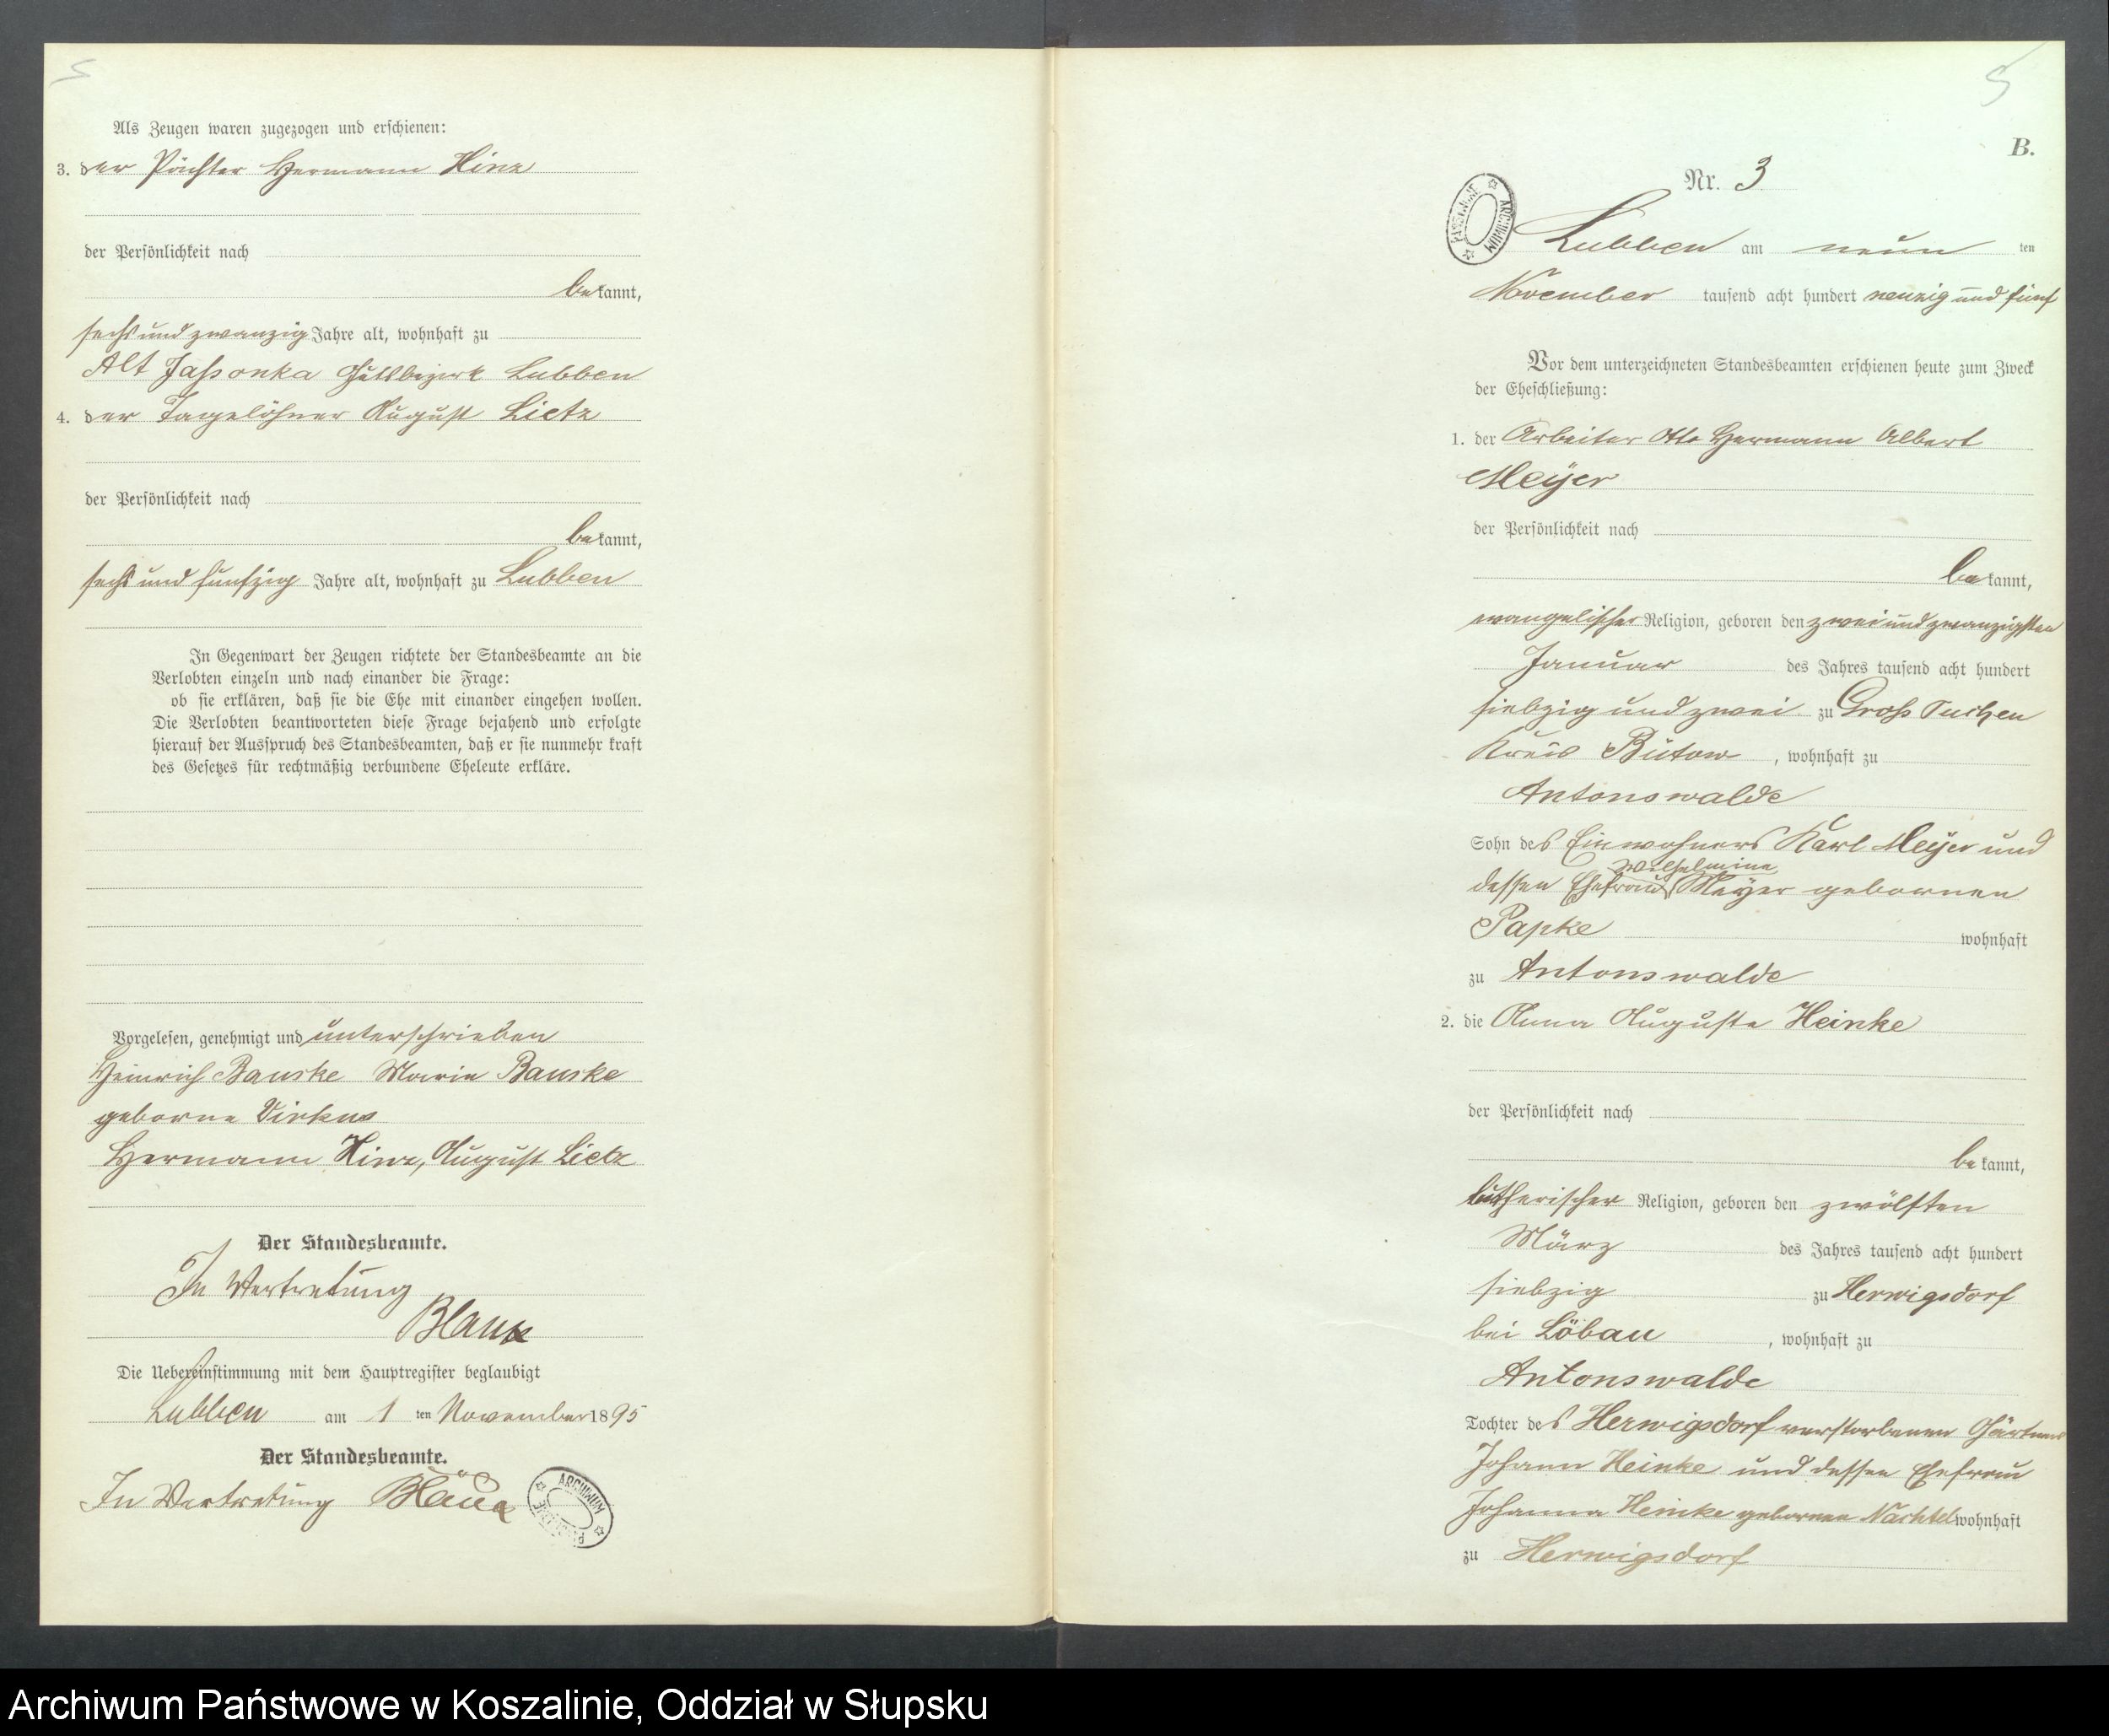 5
Als Zeugen waren zugezogen und erschienen:
3. der Pächter Hermann Hinz
der Persönlichkeit nach
bekannt,
sechs und zwanzig Jahre alt, wohnhaft zu
Alt Jassonka Gutsbezirk Lubben
4. der Tagelöhner August Lietz
der Persönlichkeit nach
bekannt,
sechs und fünfzig Jahre alt, wohnhaft zu Lubben
In Gegenwart der Zeugen richtete der Standesbeamte an die
Verlobten einzeln und nach einander die Frage:
ob sie erklären, daß sie die Ehe mit einander eingehen wollen.
Die Verlobten beantworteten diese Frage bejahend und erfolgte
hierauf der Ausspruch des Standesbeamten, daß er sie nunmehr kraft
des Gesetzes für rechtmäßig verbundene Eheleute erkläre.
Vorgelesen, genehmigt und unterschrieben
Heinrich Banske Marie Banske
geborne Virkus
Hermann Hinz, August Lietz
Der Standesbeamte.
In Vertretung
Die Uebereinstimmung mit dem Hauptregister beglaubigt
Lubben am 1 ten November 1895
Der Standesbeamte.
In Vertretung
ARCHIWUM
5
B.
Nr. 3
ARCHIWUM PAŃSTWOWE
Lubben am neun ten
November tausend acht hundert neunzig und fünf
Vor dem unterzeichneten Standesbeamten erschienen heute zum Zweck
der Eheschließung:
1. der Arbeiter Otto Hermann Albert
Meyer
der Persönlichkeit nach
bekannt,
evangelischer Religion, geboren den zwei und zwanzigsten
Januar des Jahres tausend acht hundert
siebzig und zwei zu Gross Tuchen
Kreis Bütow, wohnhaft zu
Antonswalde
Sohn des Einwohners Karl Meyer und
Wilhelmine
dessen Ehefrau Meyer gebornen
Papke wohnhaft
zu Antonswalde
2. die Anna Auguste Heinke
der Persönlichkeit nach
bekannt,
lutherischer Religion, geboren den zwölften
März des Jahres tausend acht hundert
siebzig zu Herwigsdorf
bei Löbau, wohnhaft zu
Antonswalde
Tochter des Herwigsdorf verstorbenen Gärtners
Johann Heinke und dessen Ehefrau
Johanna Heinke gebornen Nachtel wohnhaft
zu Herwigsdorf
Archiwum Państwowe w Koszalinie, Oddział w Słupsku